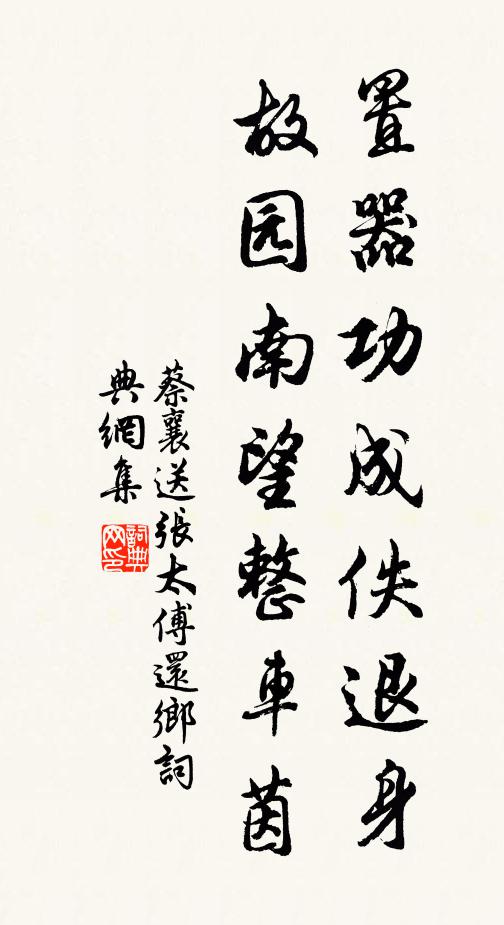 置器功成佚退身
故园南望整車茵
蔡襄送張太傅還鄉詞
典網集
詞典网印